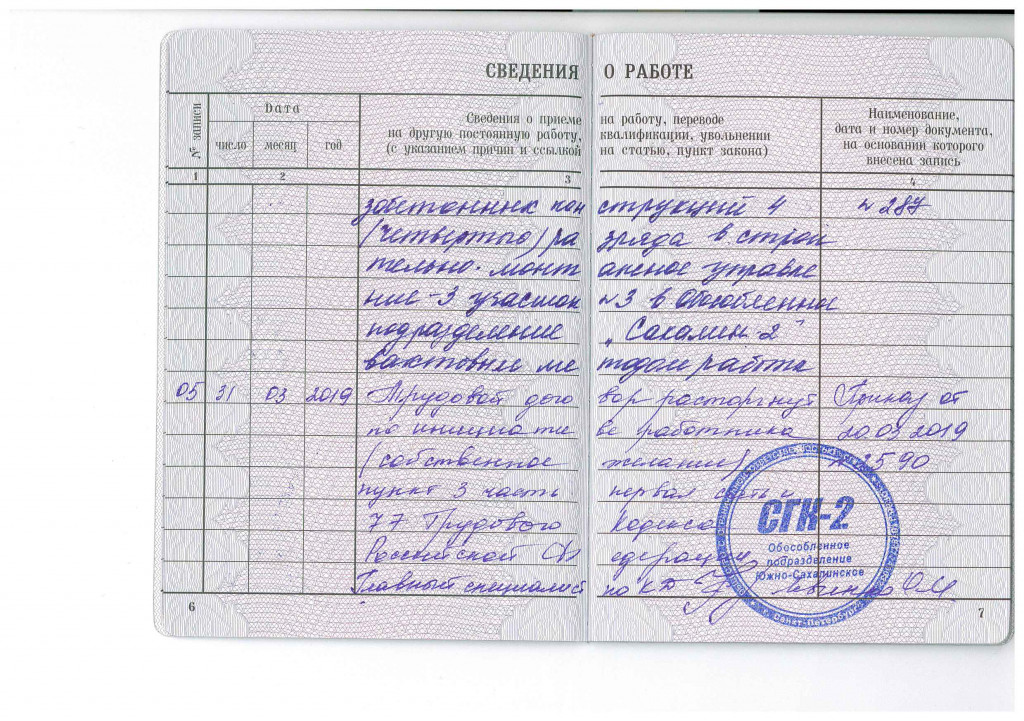 СВЕДЕНИЯ О РАБОТЕ
№ записи
Дата
число месяц год
Сведения о приеме на работу, переводе
на другую постоянную работу, квалификации, увольнении
(с указанием причин и ссылкой на статью, пункт закона)
Наименование,
дата и номер документа,
на основании которого
внесена запись
1 2 3 4
зобетонных кон струкций 4 № 287
(четвертого) ра зряда в строи
тельно-монт ажное управле
ние-3 участок №3 в Обособленное
подразделение "Сахалин-2"
вахтовым ме тодом работы
05 31 03 2019 Трудовой дого вор расторгнут Приказ от
по инициати ве работника 20.03.2019
(собственное желание) № 2590
пункт 3 часть первая статьи
77 Трудового Кодекса
Российской Фе дерации
Главный специалист по КД О.И.
СГК-2
Обособленное
подразделение
Южно-Сахалинское
Санкт-Петербург
6 7